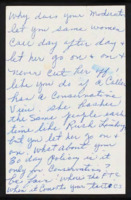 Why does your Moderator
let you same women
Care day after day &
let her go on & on &
never cut her off,
like you do if a Caller
has a Conservative
View & she bashes
the same people each
time like Rush Limbaugh
but you let her go on &
on. What about your
30 day Policy is it
only for Conservatives
I'm Sure. Where's the FCC
When it Comes to your